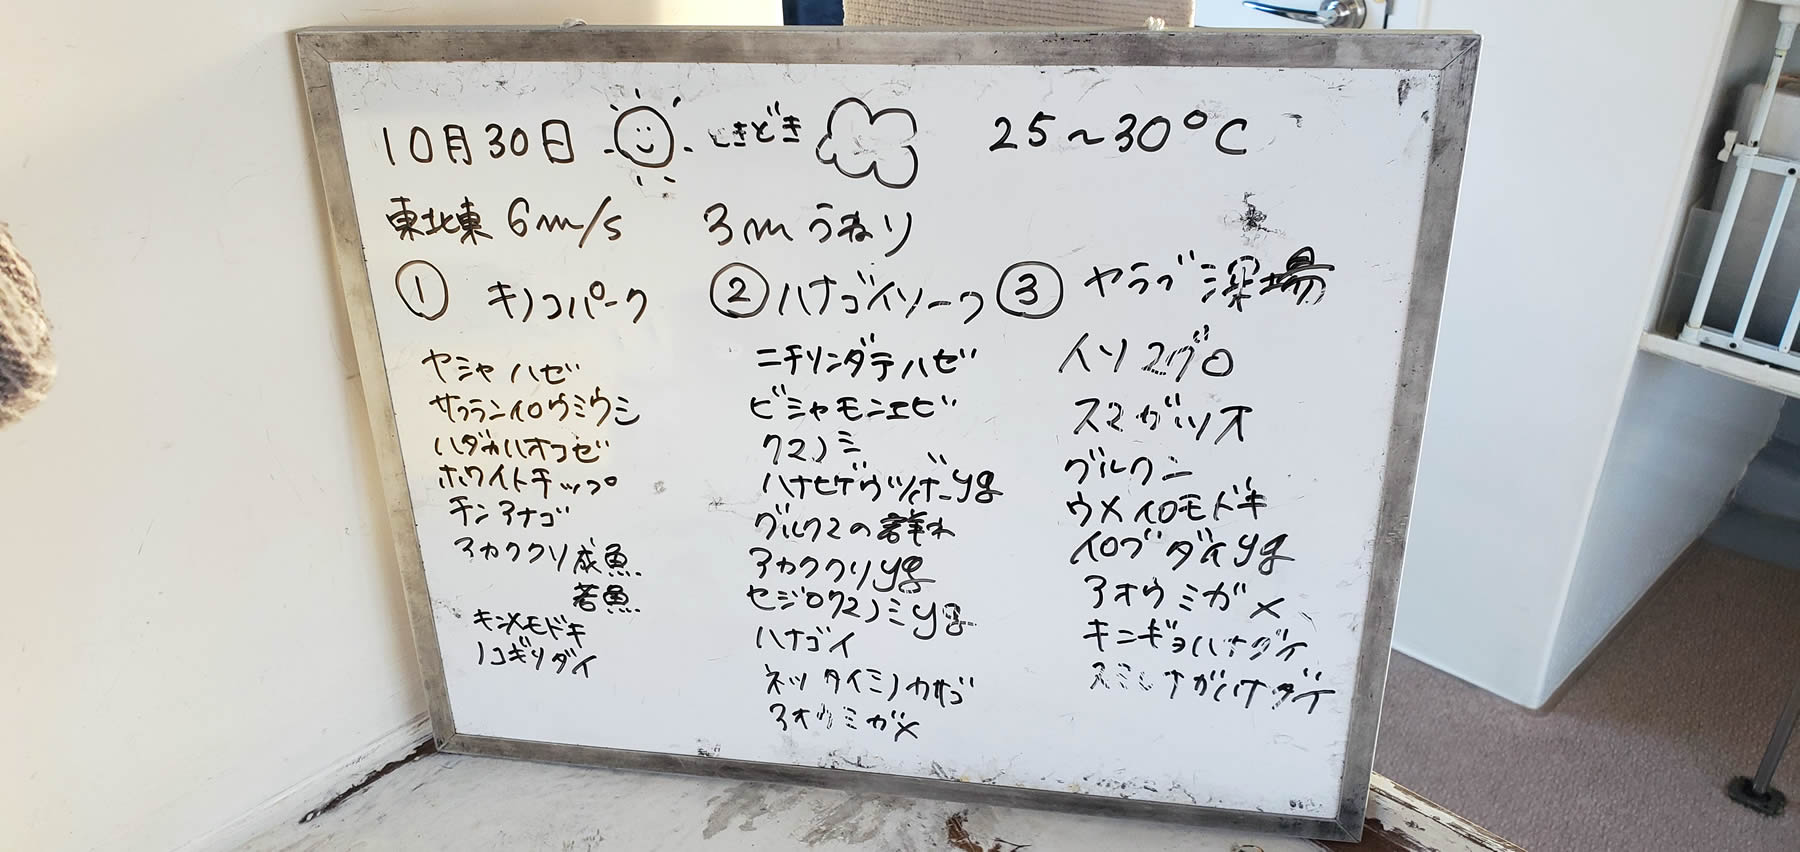 10月30日 ときどき 25～30°C
東北東 6m/s 3mうねり
① キノコパーク
ヤシャハゼ
サフランイロウミウシ
ハダカハオコゼ
ホワイトチップ
チンアナゴ
アカククリ成魚
若魚
キンメモドキ
ノコギリダイ
② ハナゴイリーフ
ニチリンダテハゼ
ビシャモンエビ
クマノミ
ハナヒゲウツボyg
グルクマの群れ
アカククリyg
セジロクマノミyg
ハナゴイ
ネッタイミノカサゴ
アオウミガメ
③ ヤラブ深場
イソマグロ
スマガツオ
グルクン
ウメイロモドキ
イロブダイyg
アオウミガメ
キンギョハナダイ
スミレナガハナダイ